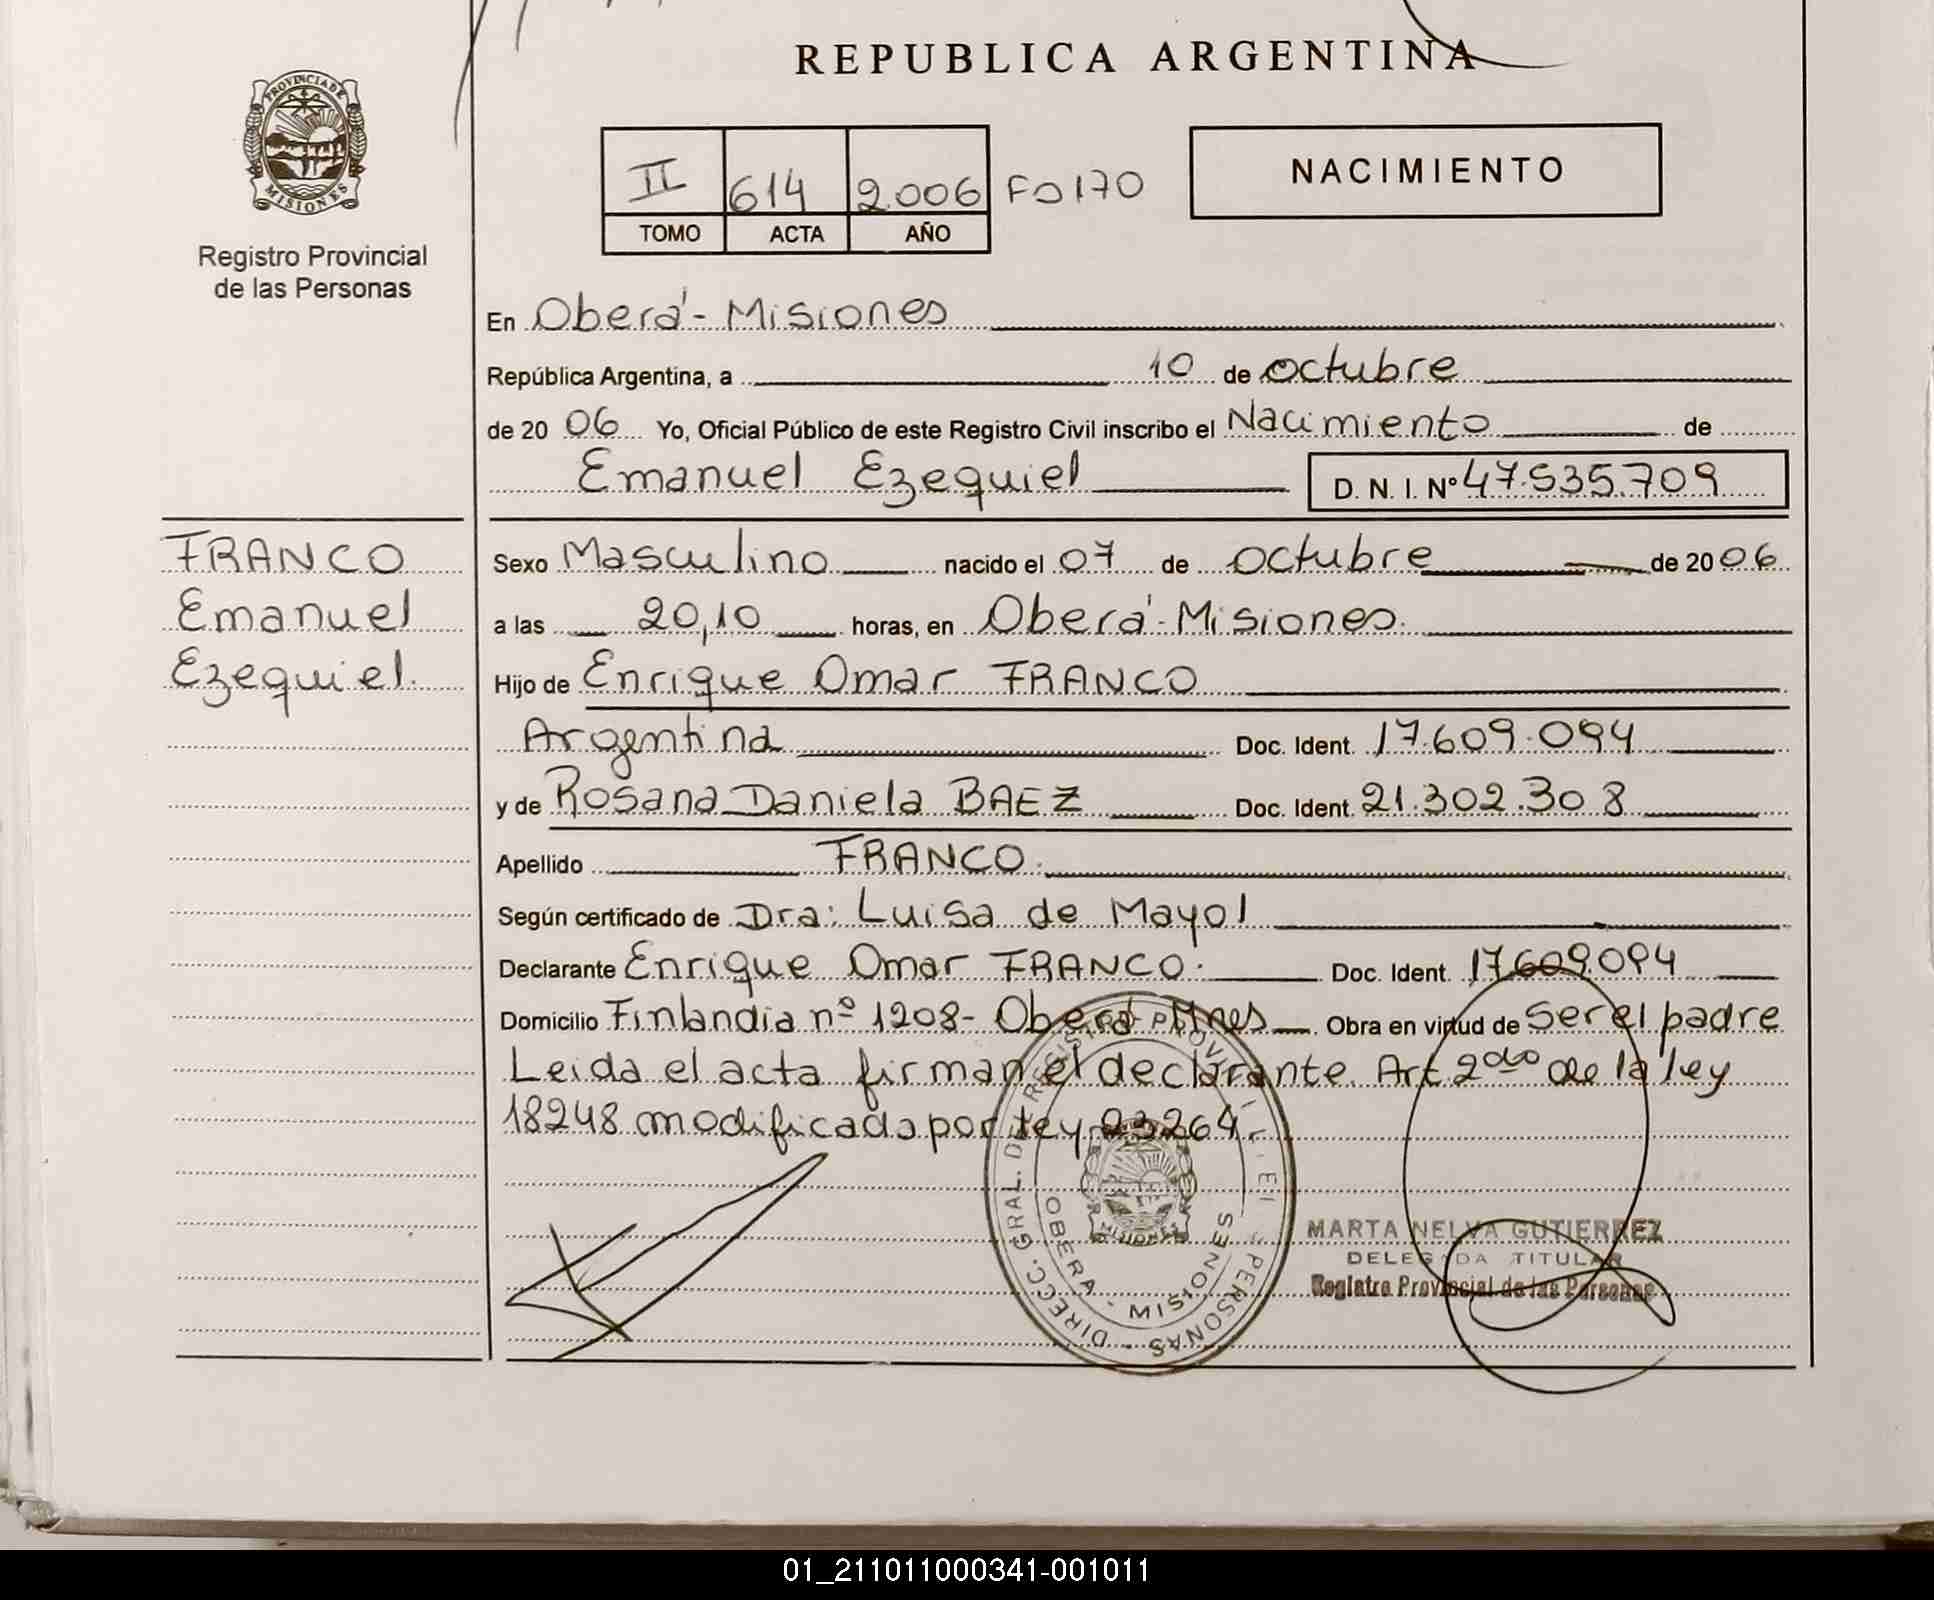 REPUBLICA ARGENTINA
PROVINCIA DE
MISIONES
Registro Provincial
de las Personas
II 614 2.006 Fo 170
TOMO ACTA AÑO
NACIMIENTO
En Oberá - Misiones
República Argentina, a 10 de octubre
de 20 06 Yo, Oficial Público de este Registro Civil inscribo el Nacimiento de
Emanuel Ezequiel D. N. I. Nº 47.535.709
FRANCO
Emanuel
Ezequiel.
Sexo Masculino nacido el 07 de octubre de 20 06
a las 20,10 horas, en Oberá - Misiones.
Hijo de Enrique Omar FRANCO
Argentina Doc. Ident. 17.609.094
y de Rosana Daniela BAEZ Doc. Ident. 21.302.308
Apellido FRANCO.
Según certificado de Dra: Luisa de Mayol
Declarante Enrique Omar FRANCO. Doc. Ident. 17.609.094
Domicilio Finlandia nº 1208 - Oberá Mnes Obra en virtud de ser el padre
Leida el acta firman el declarante. Art 2do de la ley
18248 modificada por ley 23264.
DIRECC. GRAL. DEL REGISTRO PROVINCIAL DE LAS PERSONAS
MISIONES
OBERA - MISIONES
MARTA NELVA GUTIERREZ
DELEGADA TITULAR
Registro Provincial de las Personas
01_211011000341-001011